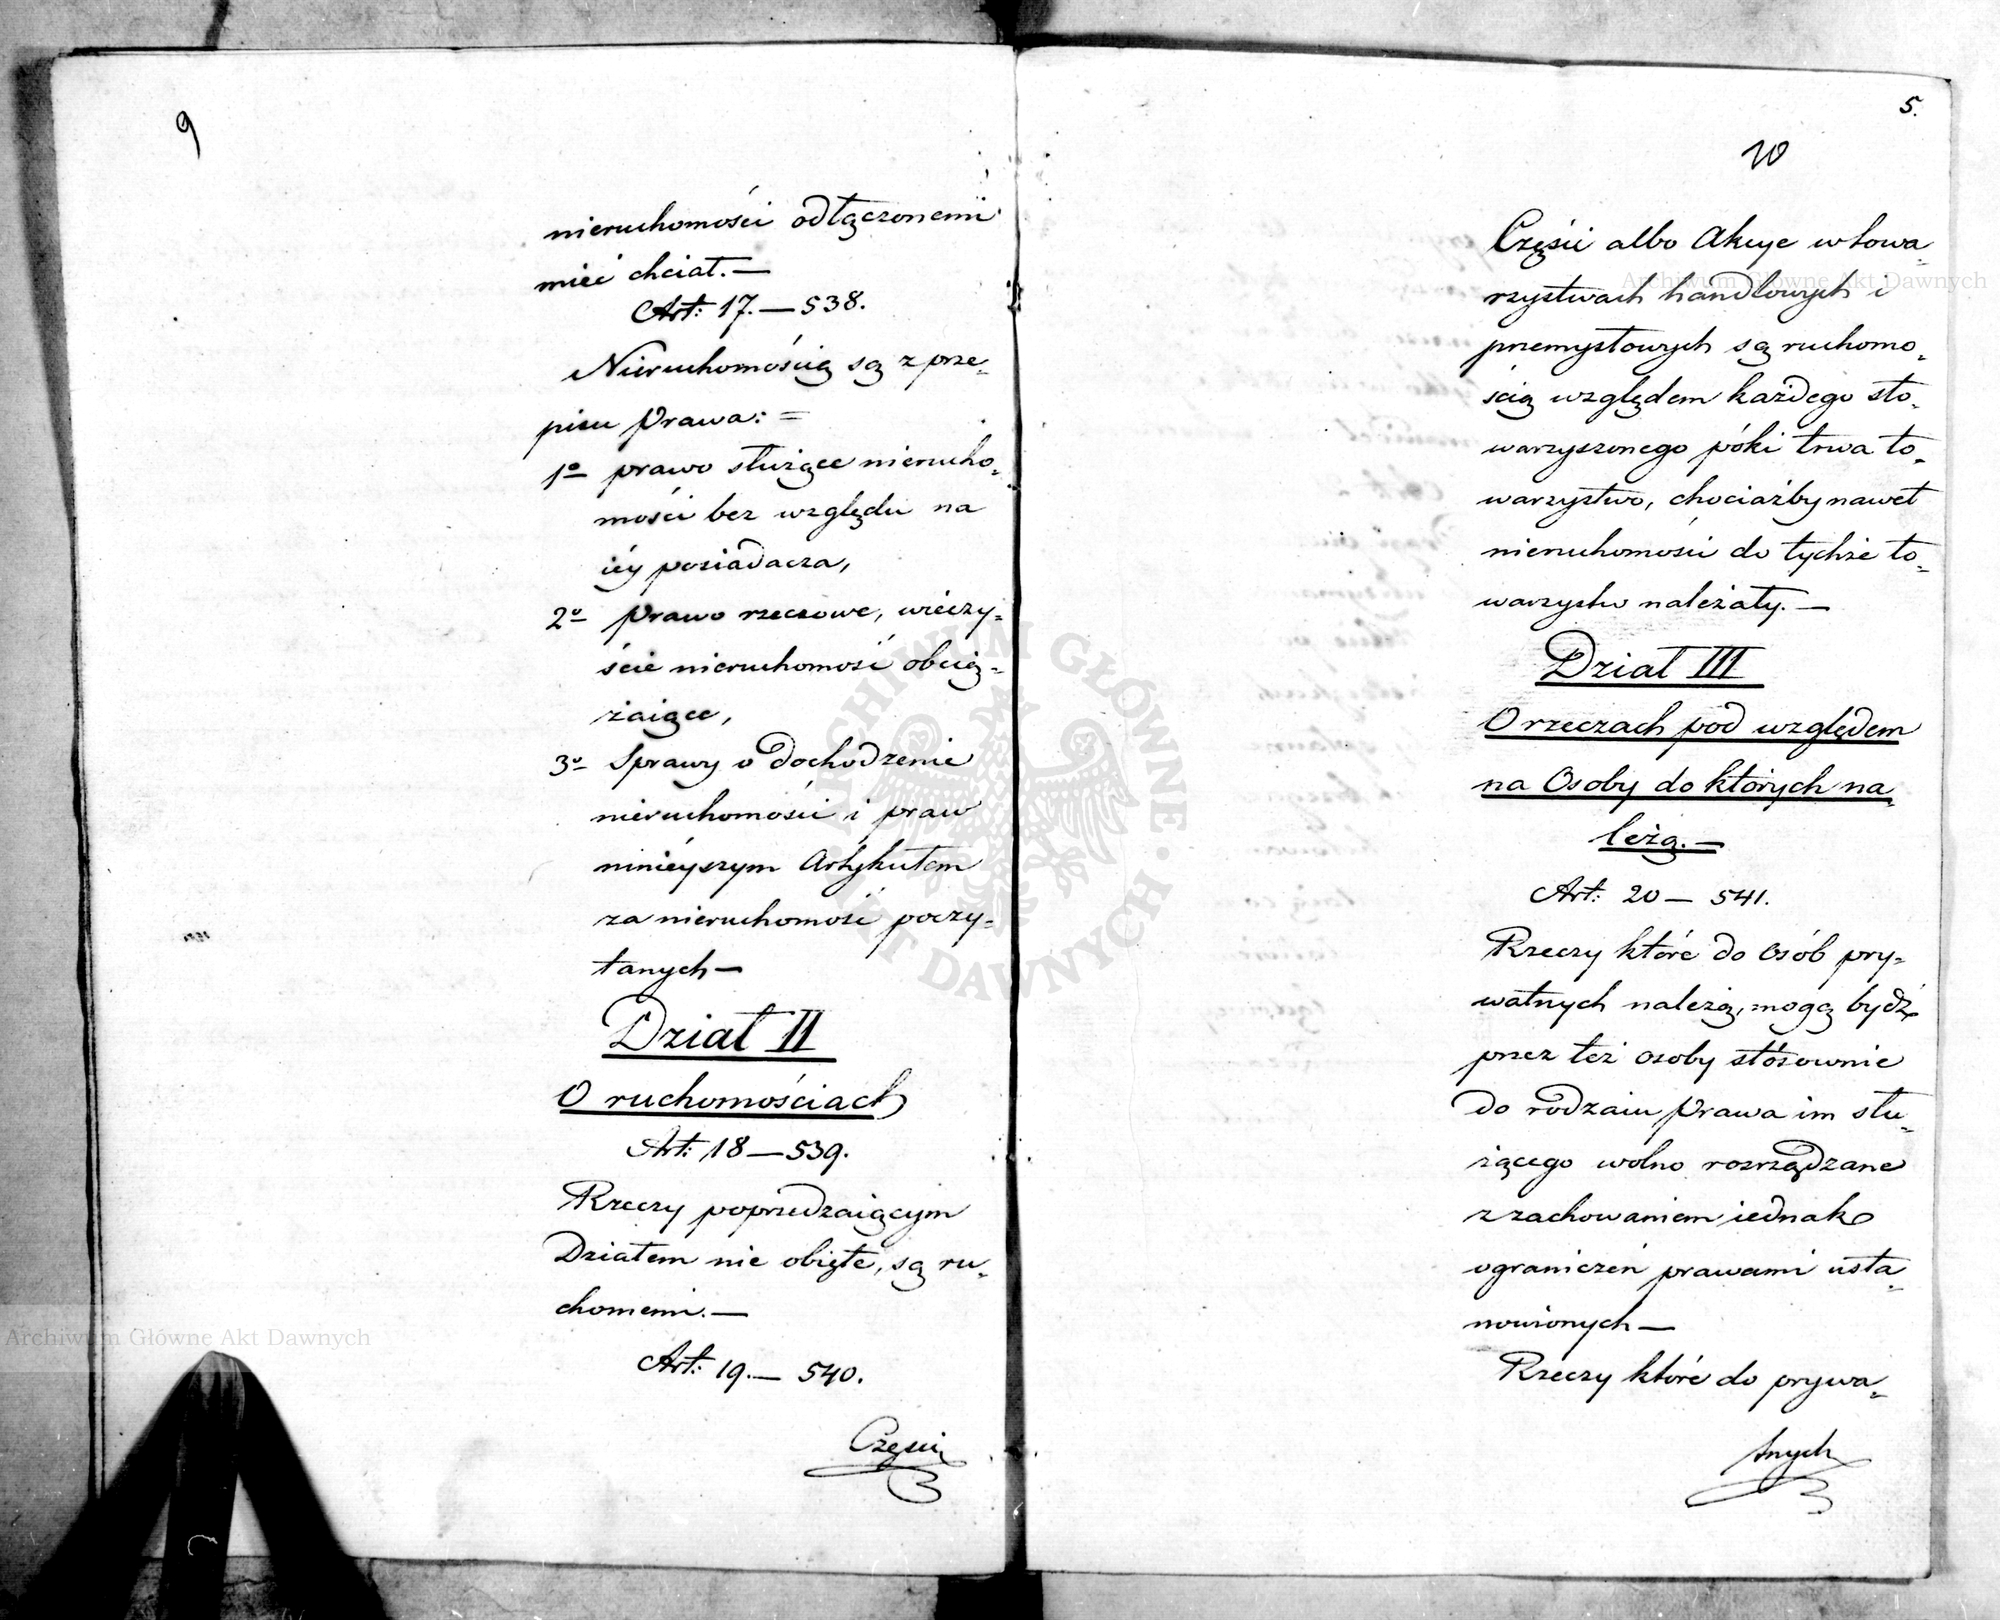 9
nieruchomości odłączonemi
mieć chciał.—
Art: 17.—538.
Nieruchomością są z prze=
pisu Prawa: =
1º prawo służące nierucho=
mości bez względu na
iéy posiadacza,
2º Prawo rzeczowe, wieczy=
ście nieruchomość obcią=
żaiące,
3º Sprawy o dochodzenie
nieruchomości i praw
ninieyszym Artykułem
za nieruchomość poczy=
tanych—
Dział II
O ruchomościach
Art: 18—539.
Rzeczy poprzedzaiącym
Działem nie obięte, są ru=
chomemi.—
Art: 19.— 540.
Części
5.
10
Części albo Akcye w towa=
rzystwach handlowych i
przemysłowych są ruchomo=
ścią względem każdego sto=
warzyszonego póki trwa to=
warzystwo, chociażby nawet
nieruchomości do tychże to=
warzystw należały.—
Dział III
O rzeczach pod względem
na Osoby do których na=
leżą.—
Art: 20— 541.
Rzeczy które do osób pry=
watnych należą, mogą bydź
przez też osoby stósownie
do rodzaiu Prawa im słu=
żącego wolno rozrządzane
z zachowaniem iednak
ograniczeń prawami usta=
nowionych—
Rzeczy które do prywa=
tnych
Archiwum Główne Akt Dawnych
Archiwum Główne Akt Dawnych
ARCHIWUM GŁÓWNE AKT DAWNYCH